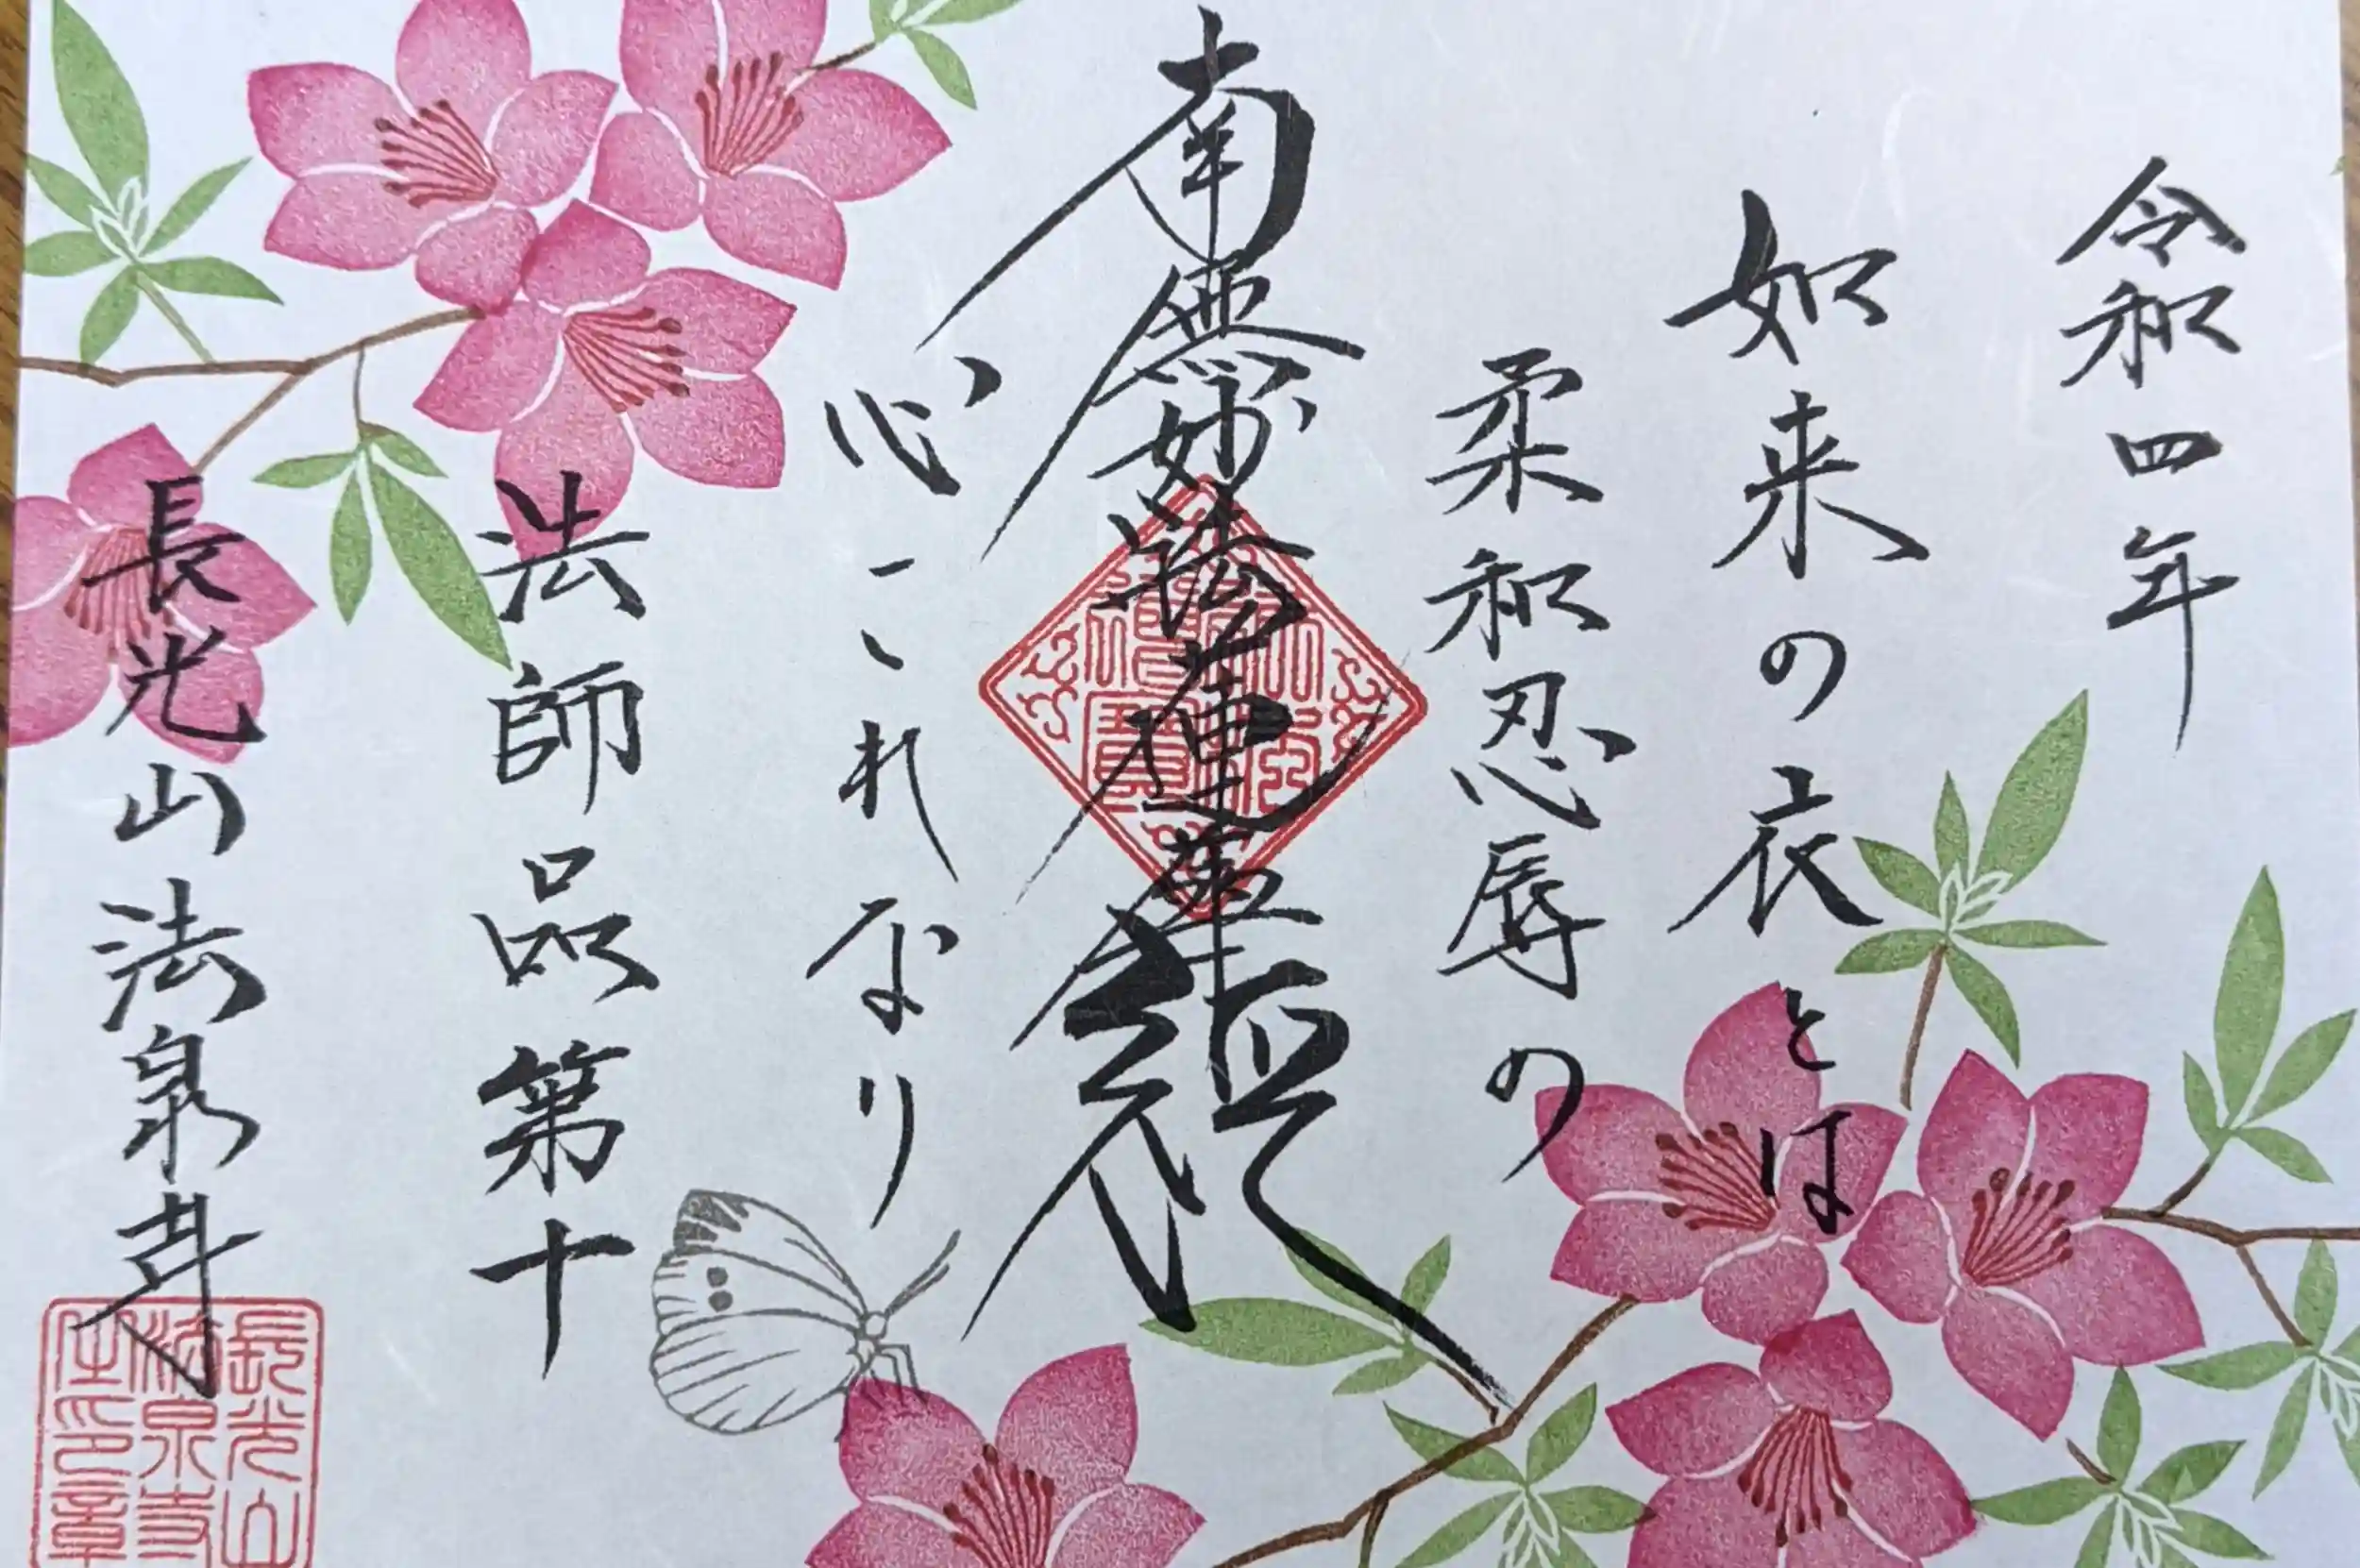 令和四年
如来の衣とは
柔和忍辱の
南無妙法蓮華経
心これなり
法師品第十
長光山法泉寺
長光山
法泉寺
主印章